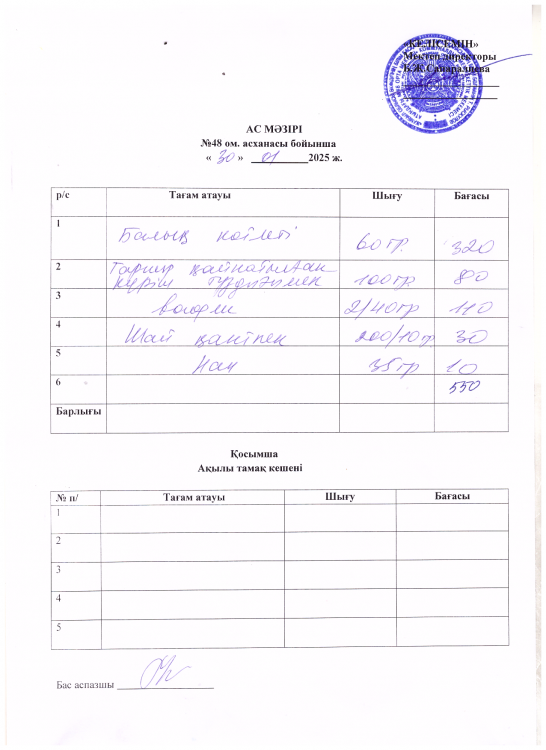 «КЕЛІСЕМІН»
Мектеп директоры
АС МӘЗІРІ
№48 ом. асханасы бойынша
« 30 » 01 2025 ж.
р/с Тағам атауы Шығу Бағасы
1 Балық котлеті 60 гр. 320
2 Гарнир қайнатылған күріш тұздығымен 100 гр. 80
3 вафли 2/40 гр 110
4 Шай қантпен 200/10 гр. 30
5 Нан 35 гр 10
6 550
Барлығы
Қосымша
Ақылы тамақ кешені
№ п/ Тағам атауы Шығу Бағасы
1
2
3
4
5
Бас аспазшы